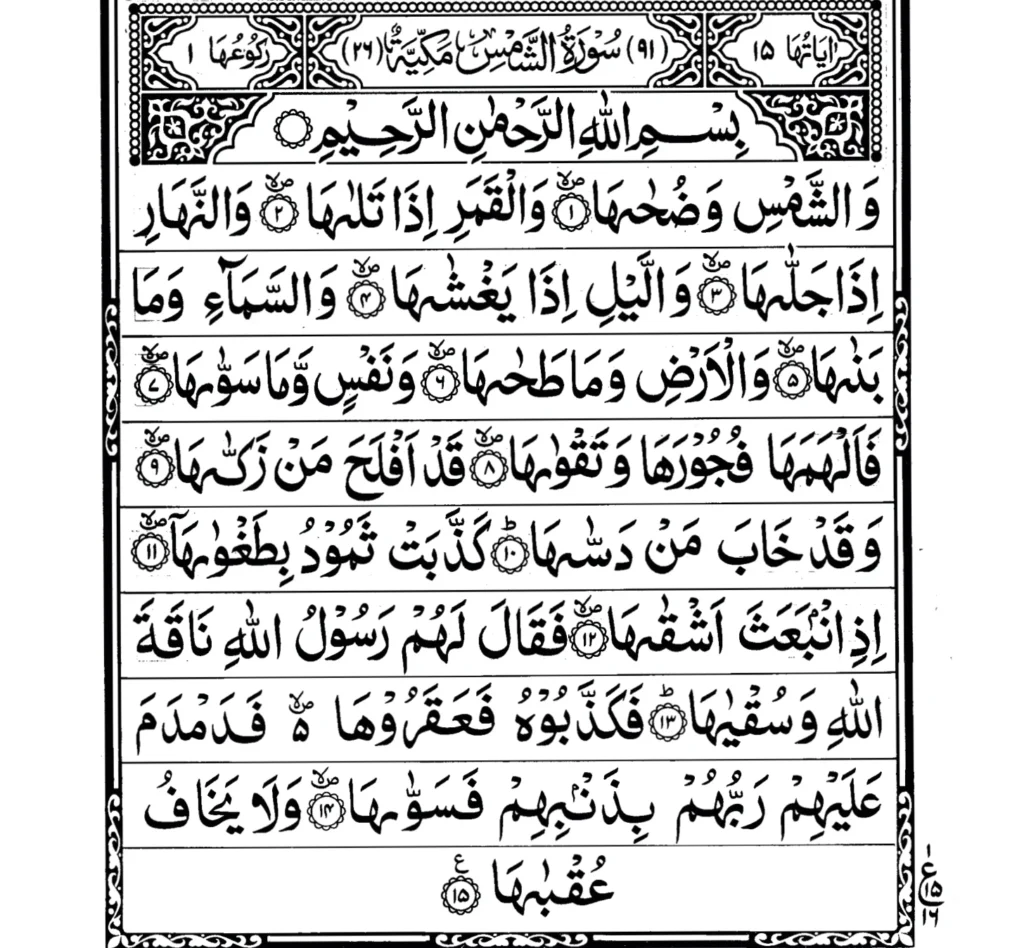 اٰيَاتُهَا ١٥ (٩١) سُوْرَةُ الشَّمْسِ مَكِّيَّةٌ (٢٦) رُكُوْعُهَا ١
بِسْمِ اللهِ الرَّحْمٰنِ الرَّحِيْمِ
وَالشَّمْسِ وَضُحٰىهَا ۙ۝١ وَالْقَمَرِ اِذَا تَلٰىهَا ۙ۝٢ وَالنَّهَارِ
اِذَا جَلّٰىهَا ۙ۝٣ وَالَّيْلِ اِذَا يَغْشٰىهَا ۙ۝٤ وَالسَّمَآءِ وَمَا
بَنٰىهَا ۙ۝٥ وَالْاَرْضِ وَمَا طَحٰىهَا ۙ۝٦ وَنَفْسٍ وَّمَا سَوّٰىهَا ۙ۝٧
فَاَلْهَمَهَا فُجُوْرَهَا وَتَقْوٰىهَا ۙ۝٨ قَدْ اَفْلَحَ مَنْ زَكّٰىهَا ۙ۝٩
وَقَدْ خَابَ مَنْ دَسّٰىهَا ؕ۝١٠ كَذَّبَتْ ثَمُوْدُ بِطَغْوٰىهَاۤ ۙ۝١١
اِذِ انْۢبَعَثَ اَشْقٰىهَا ۙ۝١٢ فَقَالَ لَهُمْ رَسُوْلُ اللهِ نَاقَةَ
اللهِ وَسُقْيٰهَا ؕ۝١٣ فَكَذَّبُوْهُ فَعَقَرُوْهَا ۙ۵ فَدَمْدَمَ
عَلَيْهِمْ رَبُّهُمْ بِذَنْۢبِهِمْ فَسَوّٰىهَا ۙ۝١٤ وَلَا يَخَافُ
عُقْبٰهَا ۝١٥ ع
١
ع
١٥
١٦